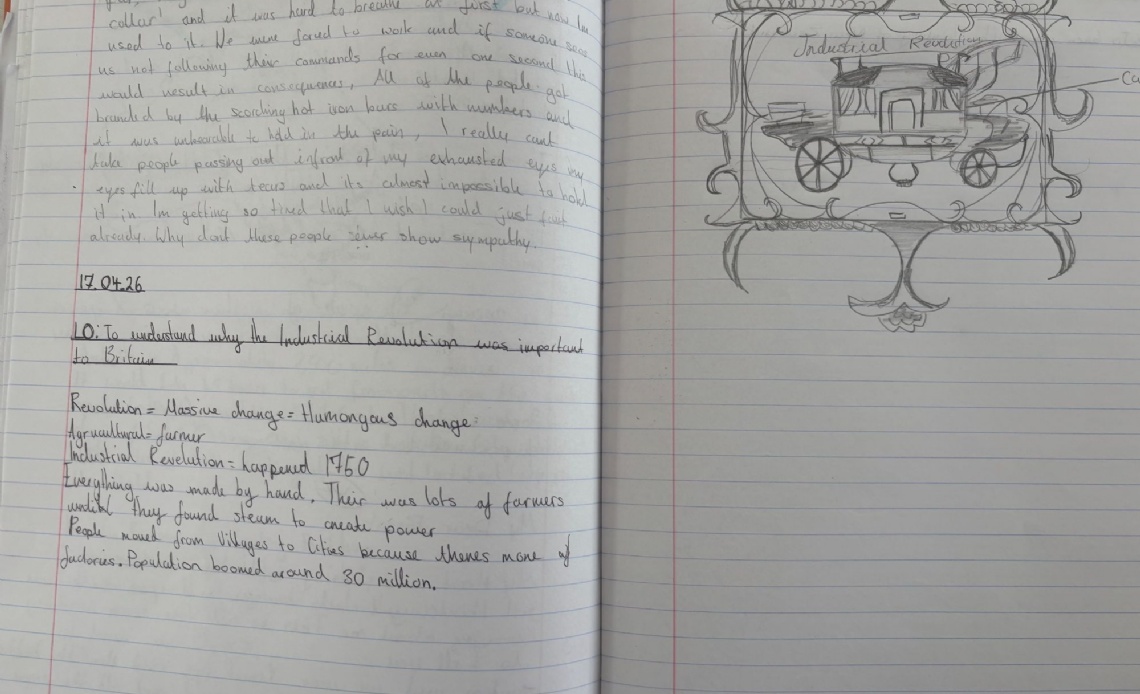 collar' and it was hard to breathe at first but now Im
used to it. We were forced to work and if someone sees
us not following their commands for even one second this
would result in consequences, All of the people got
branded by the scorching hot iron bars with numbers and
it was unbearable to hold in the pain, I really cant
take people passing out infront of my exhausted eyes my
eyes fill up with tears and its almost impossible to hold
it in Im getting so tired that I wish I could just
already. Why dont these people never show sympathy.
17.04.26
LO: To understand why the Industrial Revolution was important
to Britain
Revolution = Massive change = Humongous change
Agrucultural = farmer
Industrial Revelution = happened 1750
Everything was made by hand. Their was lots of farmers
undtil they found steam to create power
People moved from Villages to Cities because theres more of
factories. Population boomed around 30 million.
Industrial Revolution